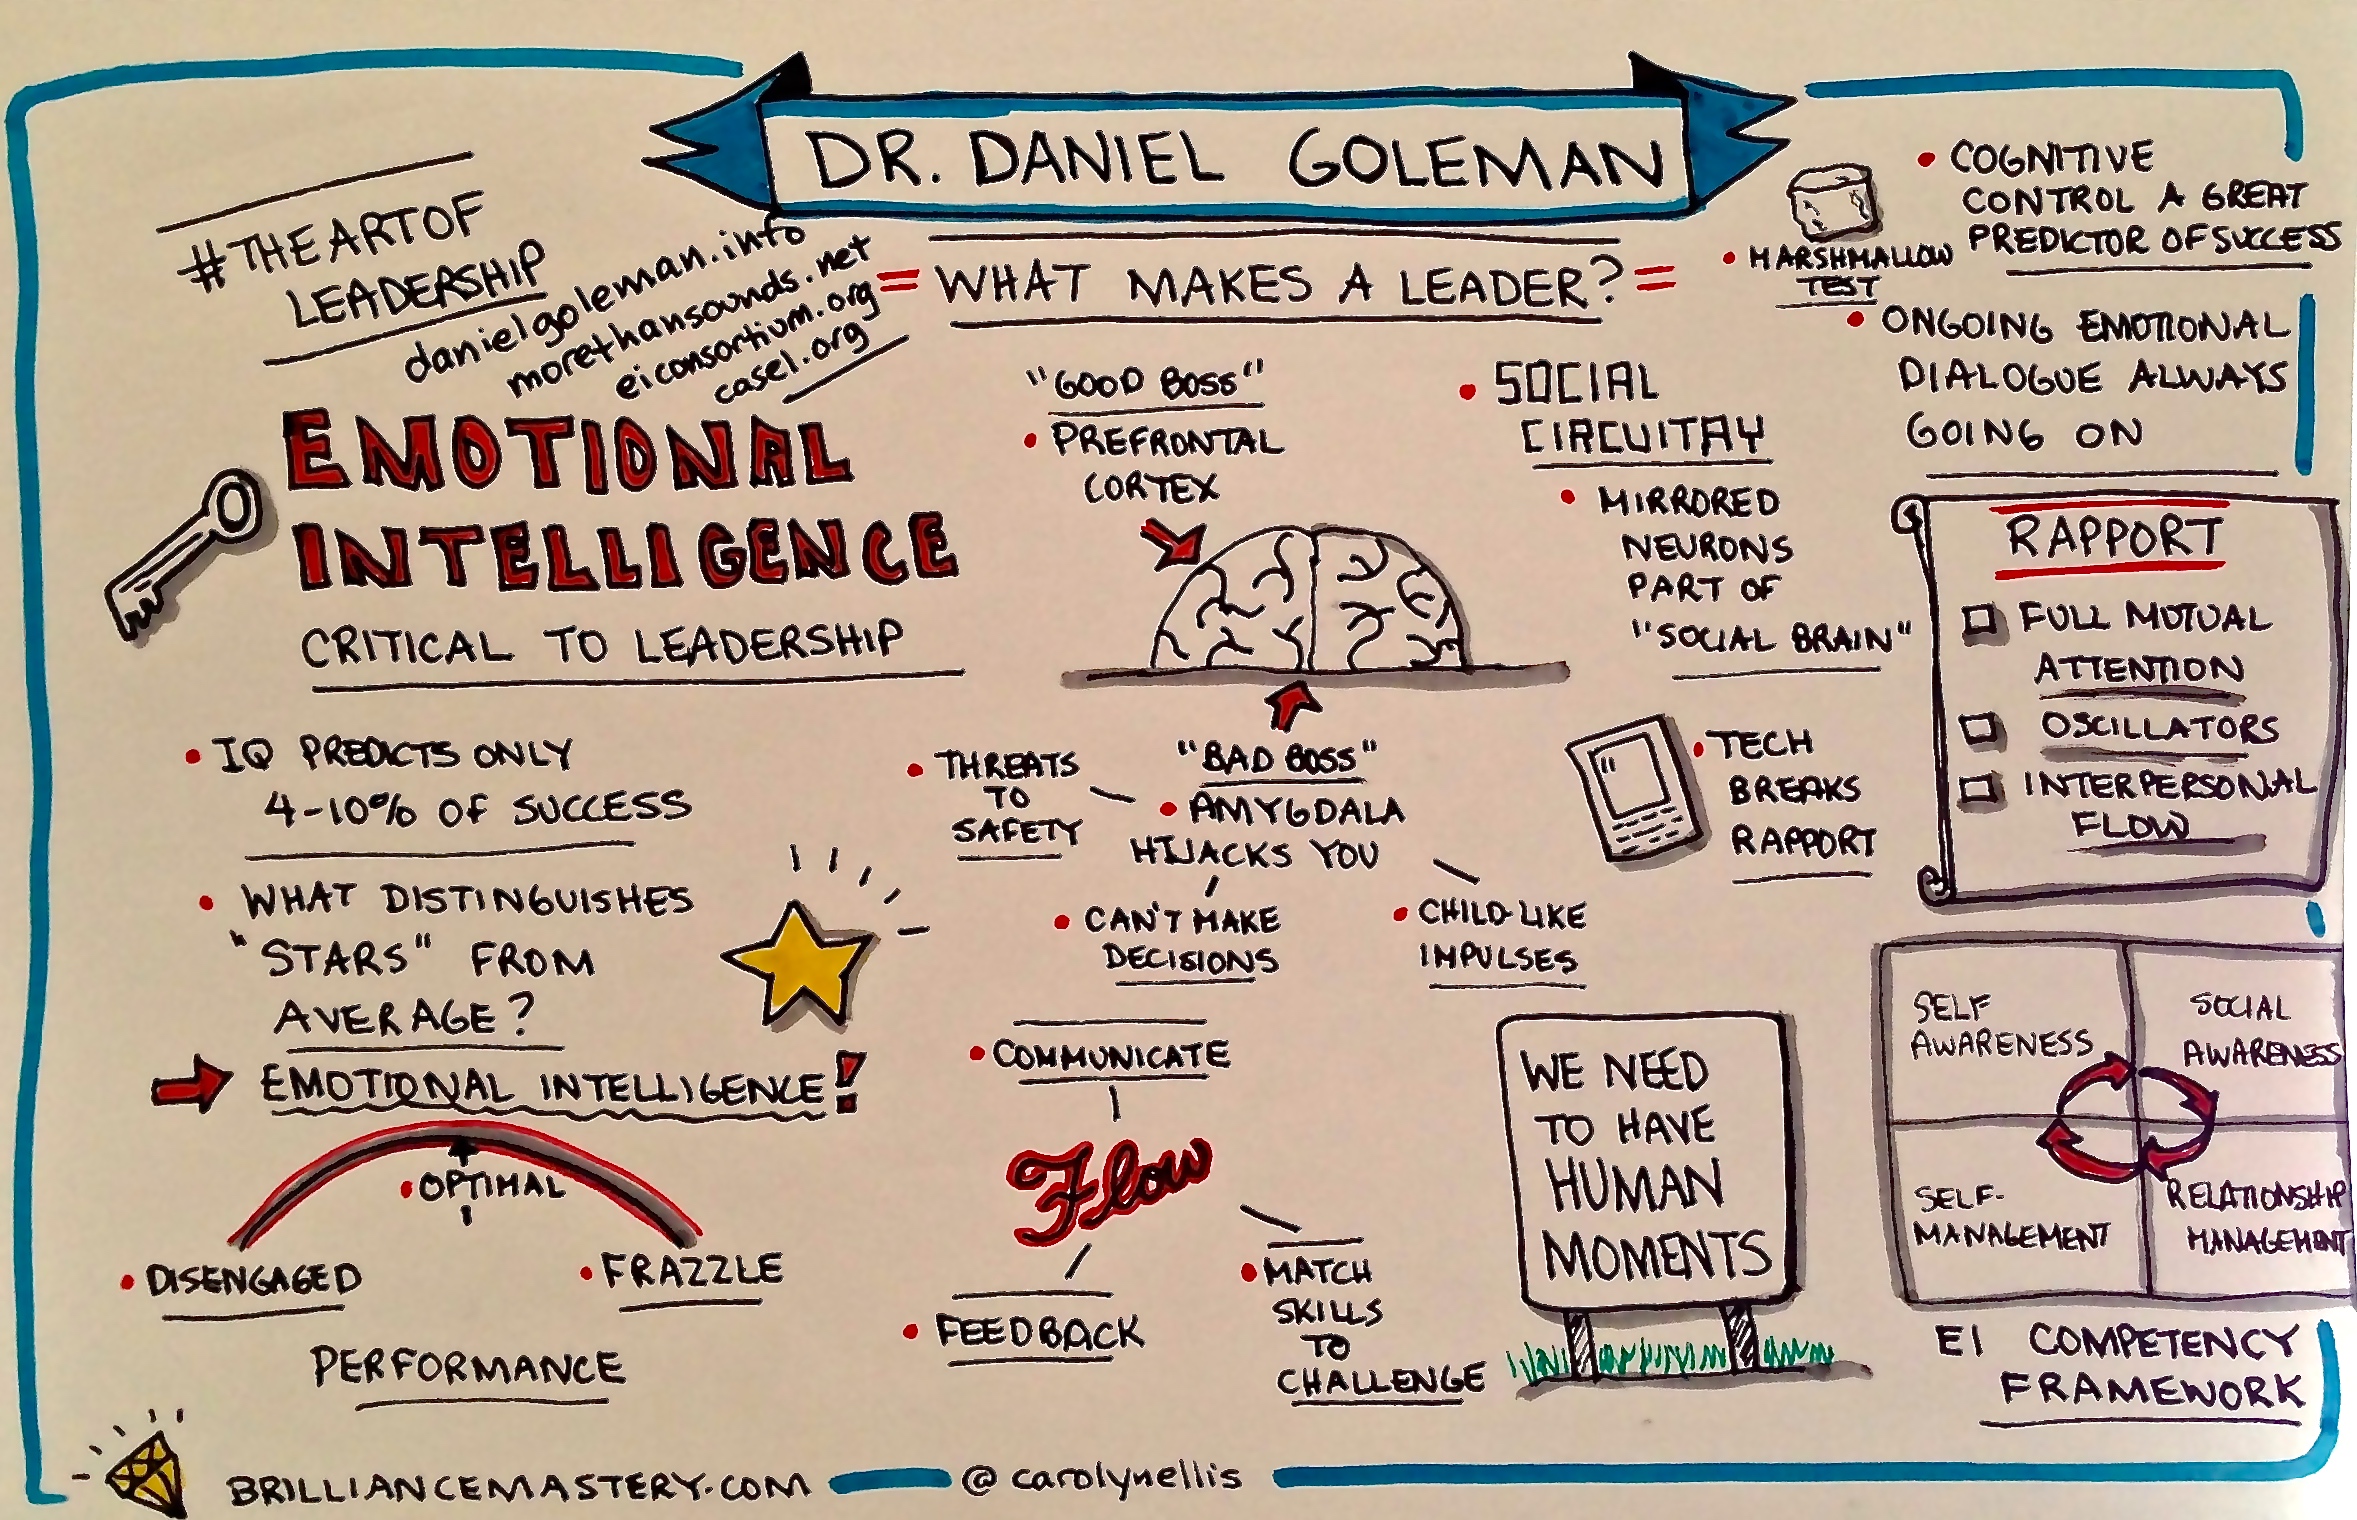 DR. DANIEL GOLEMAN
#THEARTOF
LEADERSHIP
danielgoleman.info
morethansounds.net
eiconsortium.org
casel.org
= WHAT MAKES A LEADER? =
EMOTIONAL
INTELLIGENCE
CRITICAL TO LEADERSHIP
• IQ PREDICTS ONLY
4-10% OF SUCCESS
• WHAT DISTINGUISHES
"STARS" FROM
AVERAGE?
EMOTIONAL INTELLIGENCE!
• OPTIMAL
• DISENGAGED
• FRAZZLE
PERFORMANCE
"GOOD BOSS"
• PREFRONTAL
CORTEX
"BAD BOSS"
• AMYGDALA
HIJACKS YOU
• THREATS
TO
SAFETY
• CAN'T MAKE
DECISIONS
• CHILD-LIKE
IMPULSES
• COMMUNICATE
Flow
• FEEDBACK
• MATCH
SKILLS
TO
CHALLENGE
• SOCIAL
CIRCUITRY
• MIRRORED
NEURONS
PART OF
"SOCIAL BRAIN"
• TECH
BREAKS
RAPPORT
WE NEED
TO HAVE
HUMAN
MOMENTS
• MARSHMALLOW
TEST
• COGNITIVE
CONTROL A GREAT
PREDICTOR OF SUCCESS
• ONGOING EMOTIONAL
DIALOGUE ALWAYS
GOING ON
RAPPORT
FULL MUTUAL
ATTENTION
OSCILLATORS
INTERPERSONAL
FLOW
SELF
AWARENESS
SOCIAL
AWARENESS
SELF-
MANAGEMENT
RELATIONSHIP
MANAGEMENT
EI COMPETENCY
FRAMEWORK
BRILLIANCEMASTERY.COM
@carolynellis